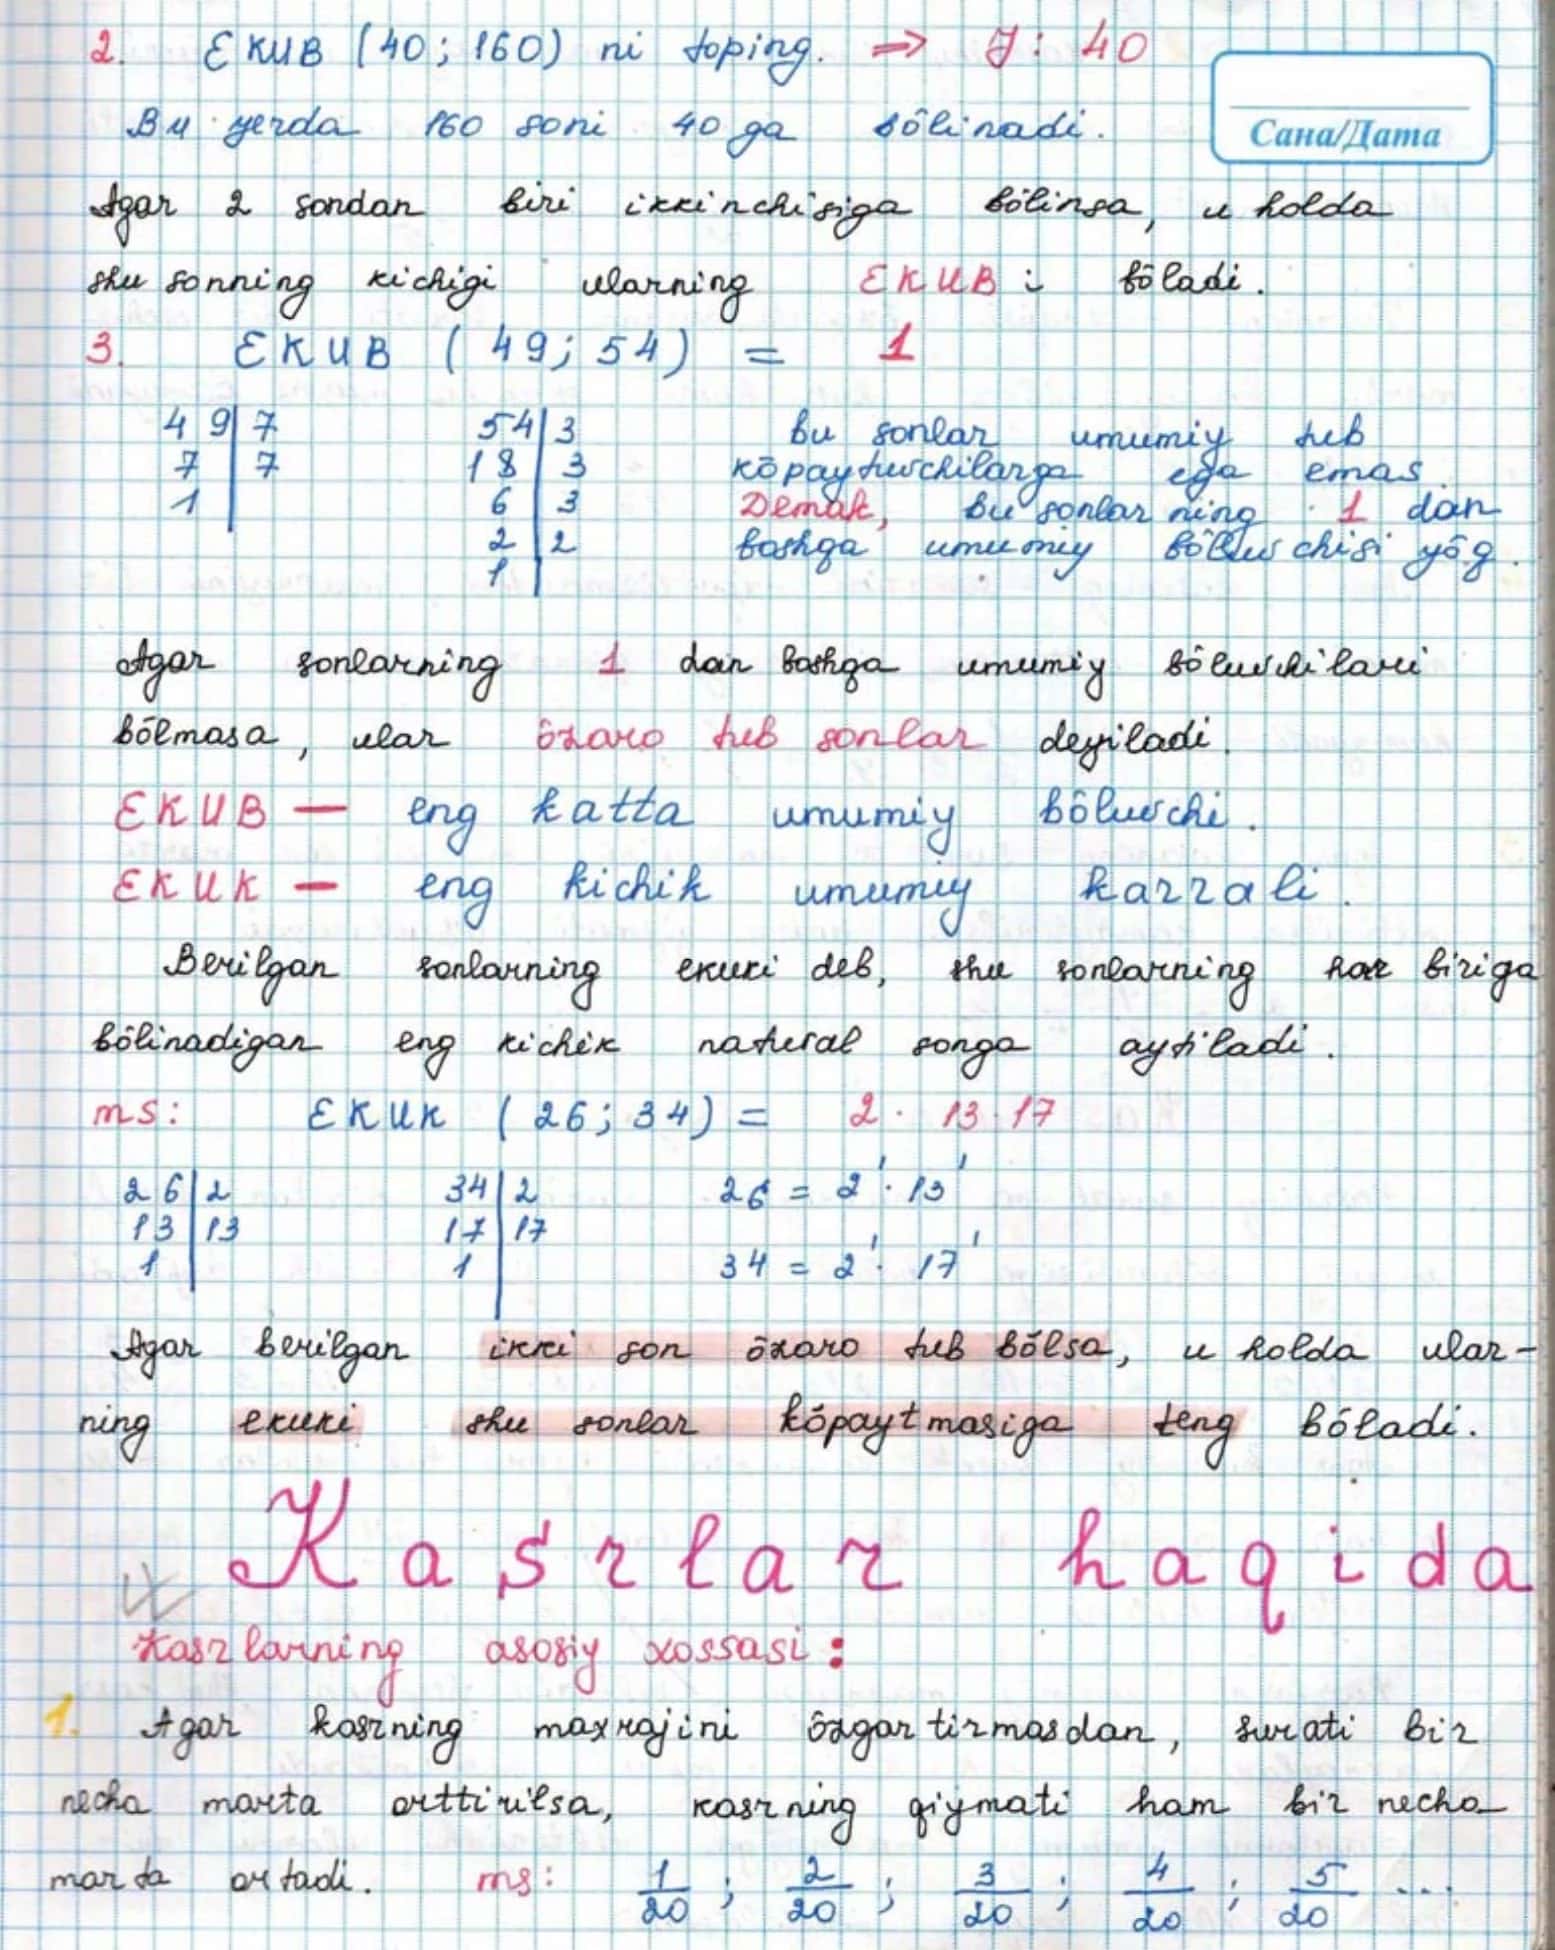 2. EKUB (40; 160) ni toping. ⇒ J: 40
Сана/Дата
Bu yerda 160 soni 40 ga bôlinadi.
Agar 2 sondan biri ikkinchisiga bôlinsa, u holda
shu sonning kichigi ularning EKUB i bôladi.
3. EKUB (49; 54) = 1
49|7 54|3 bu sonlar umumiy tub
7|7 18|3 kōpaytuvchilarga ega emas.
1| 6|3 Demak, bu sonlarning 1 dan
2|2 boshqa umumiy bôluvchisi yōq.
1|
Agar sonlarning 1 dan boshqa umumiy bôluvchilari
bôlmasa, ular ôzaro tub sonlar deyiladi.
EKUB — eng katta umumiy bôluvchi.
EKUK — eng kichik umumiy karrali.
Berilgan sonlarning ekuki deb, shu sonlarning har biriga
bôlinadigan eng kichik natural songa aytiladi.
ms: EKUK (26; 34) = 2 · 13 · 17
26|2 34|2 26 = 2¹ · 13¹
13|13 17|17
1| 1| 34 = 2¹ · 17¹
Agar berilgan ikki son ōzaro tub bōlsa, u holda ular-
ning ekuki shu sonlar kōpaytmasiga teng bōladi.
Kasrlar haqida
Kasrlarning asosiy xossasi:
1. Agar kasrning maxrajini ôzgartirmasdan, surati bir
necha marta orttirilsa, kasrning qiymati ham bir necha
marta ortadi. ms: 1/20 ; 2/20 ; 3/20 ; 4/20 ; 5/20 ...